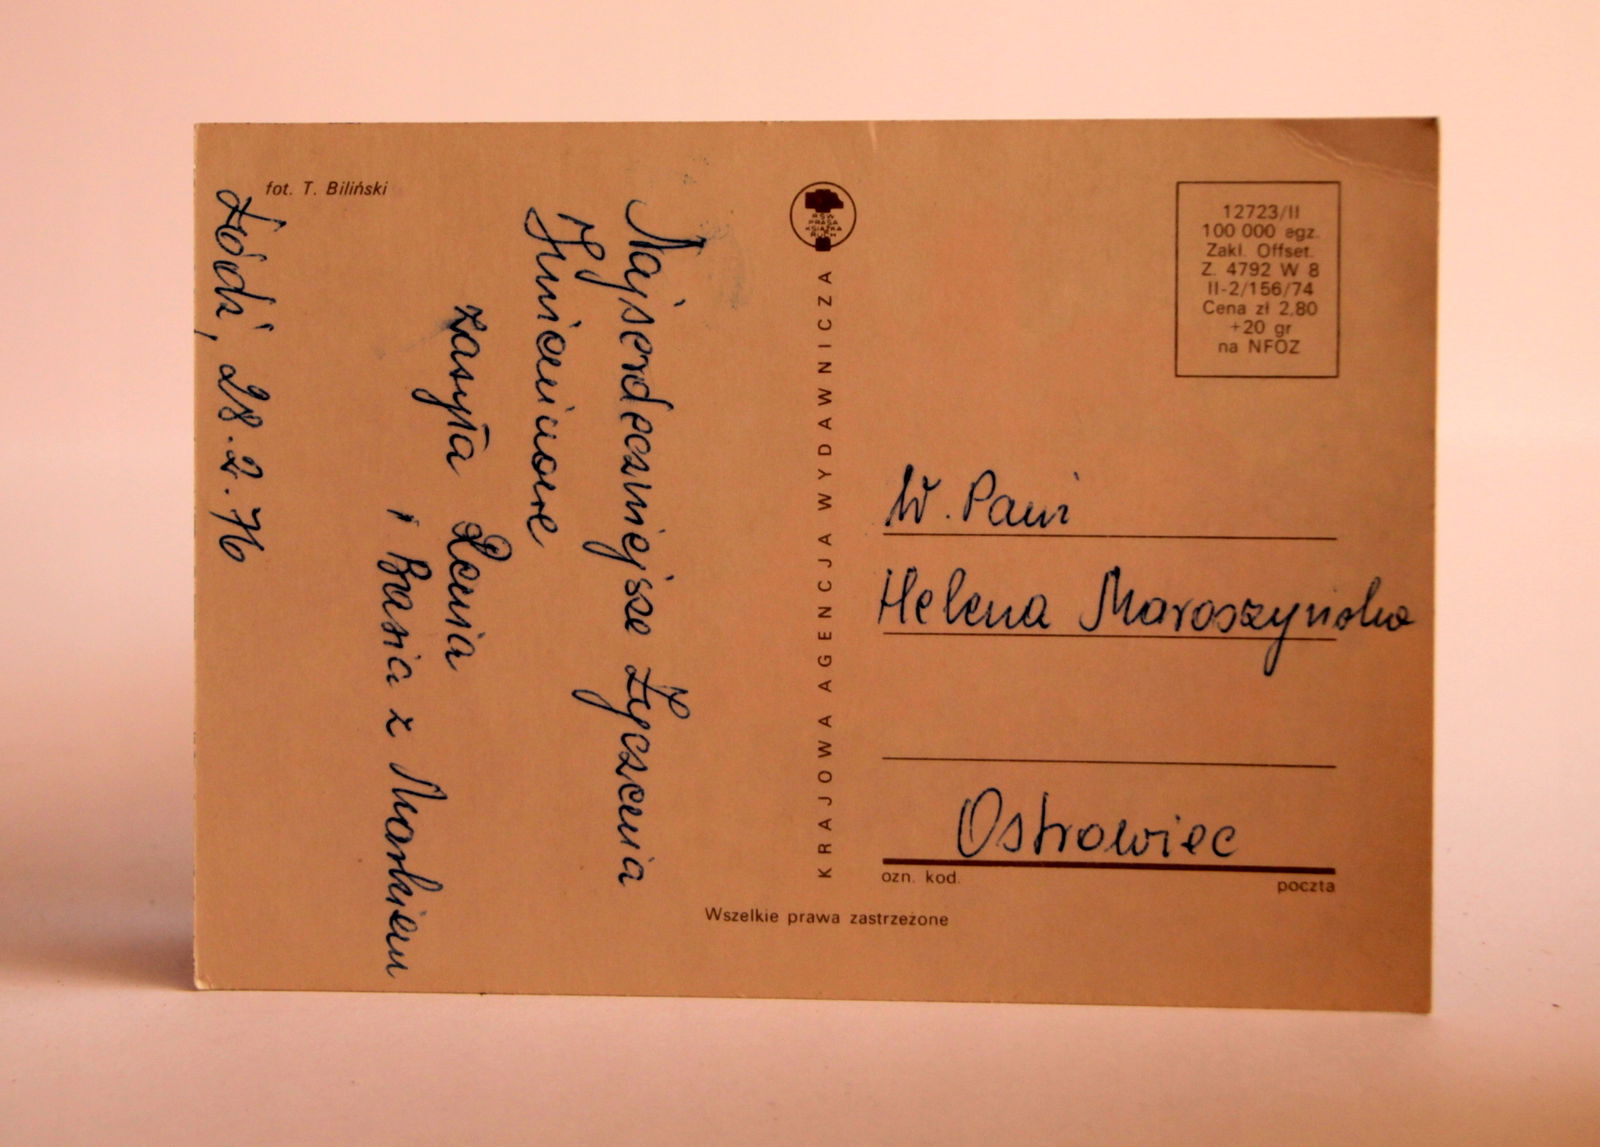 fot. T. Biliński
Najserdeczniejsze Życzenia
Imieninowe
zasyła Lenia
i Basia z Markiem
Łódź, 28.2.76
RSW
PRASA
KSIĄŻKA
RUCH
KRAJOWA AGENCJA WYDAWNICZA
12723/II
100 000 egz.
Zakł. Offset.
Z. 4792 W 8
II-2/156/74
Cena zł 2,80
+20 gr
na NFOZ
W. Pani
Helena Maroszyńska
Ostrowiec
ozn. kod.
poczta
Wszelkie prawa zastrzeżone